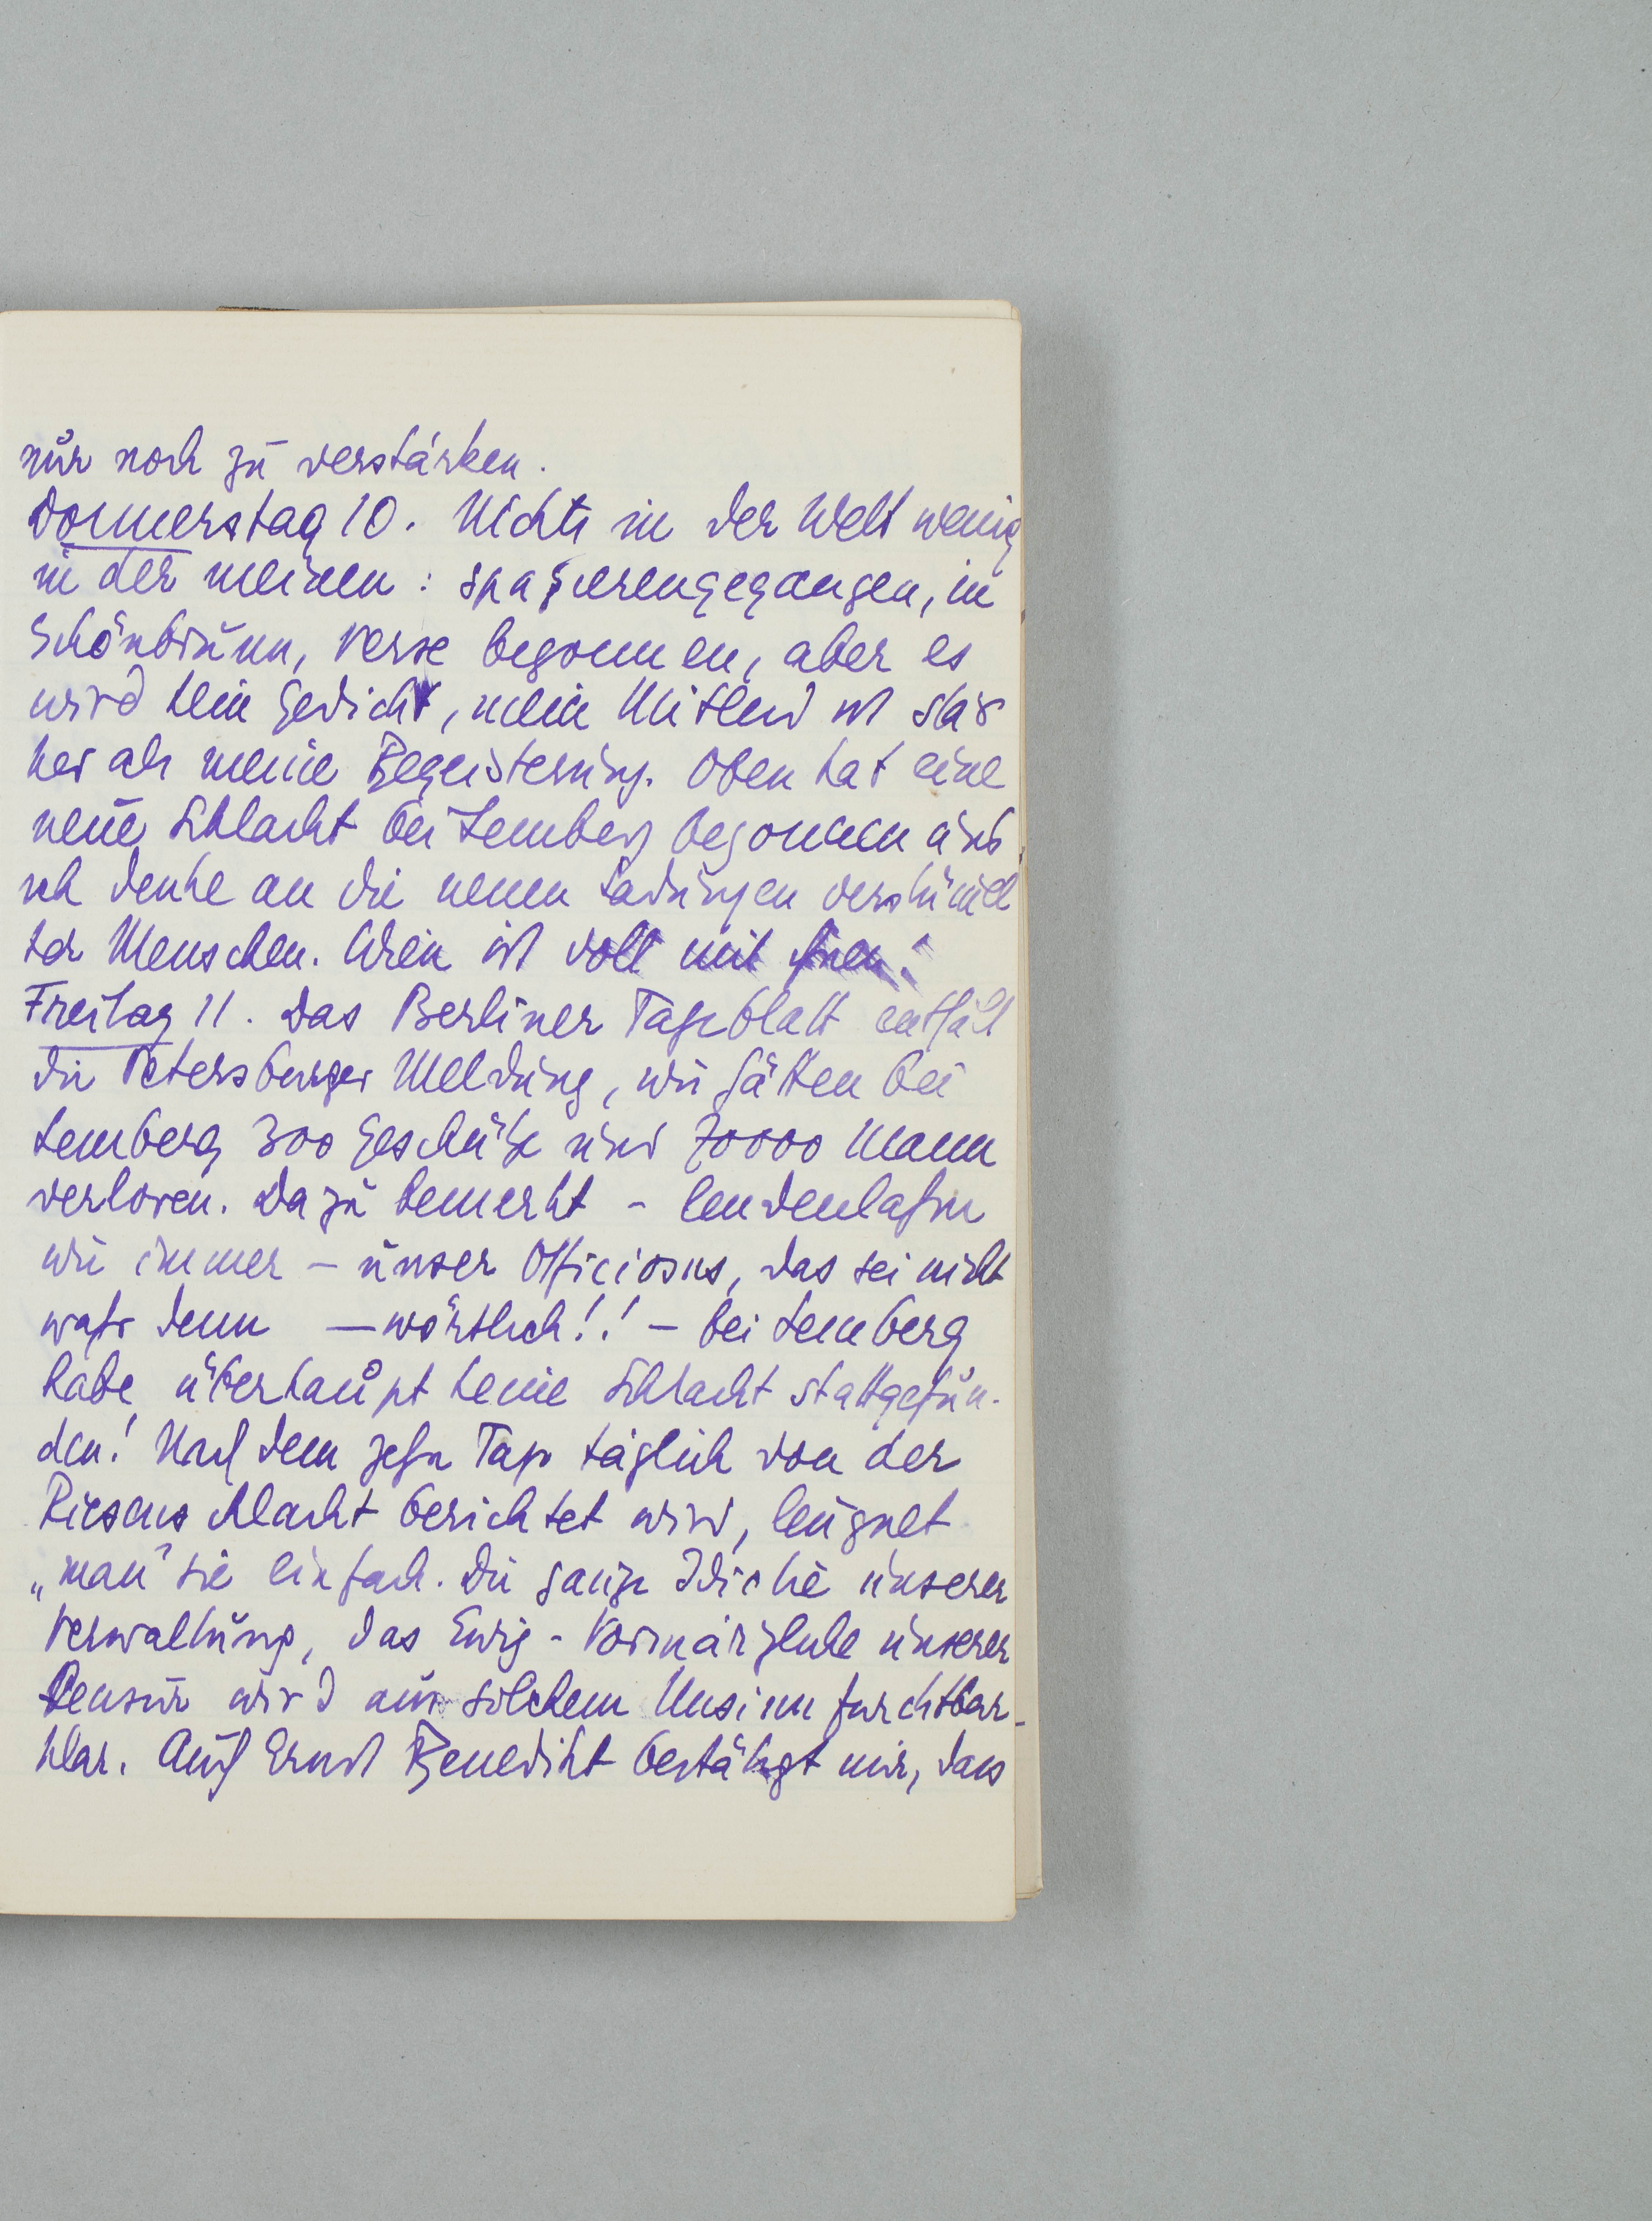 nur noch zu verstärken.
Donnerstag 10. Nichts in der Welt wenig
in der meinen: spazierengegangen, in
Schönbrunn, Verse begonnen, aber es
wird kein Gedicht, mein Mitleid ist stär
ker als meine Begeisterung. Oben hat eine
neue Schlacht bei Lemberg begonnen und
ich denke an die neuen Ladungen verstümmel
ter Menschen. Wien ist voll mit ihnen!
Freitag 11. Das Berliner Tageblatt enthält
die Petersburger Meldung, wir hätten bei
Lemberg 300 Geschütze und 70000 Mann
verloren. Dazu bemerkt - lendenlahm
wie immer - unser Officiosus, das sei nicht
wahr denn - wörtlich!! - bei Lemberg
habe überhaupt keine Schlacht stattgefun-
den! Nachdem zehn Tage täglich von der
Riesenschlacht berichtet wird, leugnet
„man" sie einfach. Die ganze Idiotie unserer
Verwaltung, das Ewig-Vormärzliche unserer
Censur wird aus solchem Unsinn furchtbar
klar. Auch Ernst Benedikt bestätigt mir, dass